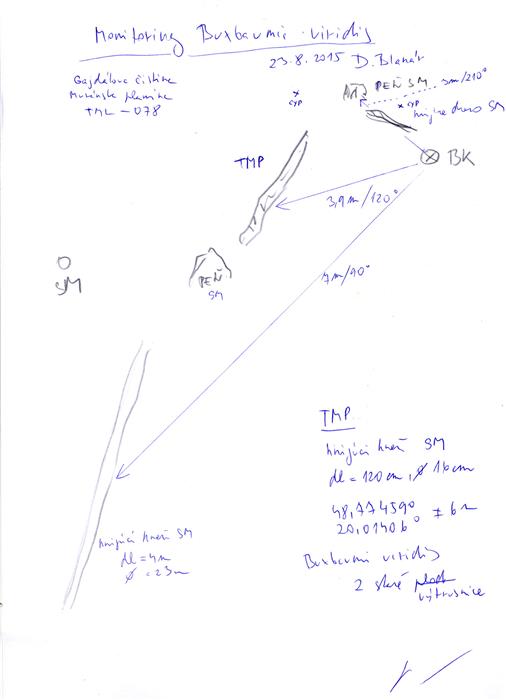 Monitoring Buxbaumia viridis
23.8.2015 D. Blanár
Gajdálova čistina
Muránska planina
TML - 078
x
CYP
PEŇ SM
3m/210°
x CYP
hnijúce drevo SM
TMP
BK
3,9m/120°
SM
PEŇ
SM
7m/90°
TMP
hnijúci kmeň SM
dl = 120 cm, ø 16 cm
48,774590
20,01406° ± 6m
hnijúci kmeň SM
dl = 4m
Buxbaumia viridis
2 staré plod
výtrusnice